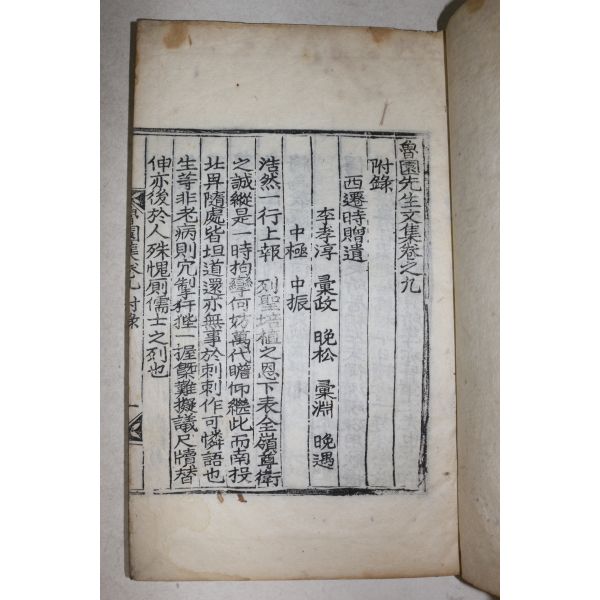 魯園先生文集卷之九
附錄
西遷時贈遺
李孝淳 彙政 晩松 彙淵 晩遇
中極 中振
浩然一行上報 列聖培植之恩下表全嶺尊衛
之誠縱是一時拘攣何妨萬代瞻仰繼此而南投
北畀隨處皆坦道還亦無事於刺刺作可憐語也
生等非老病則冗掣扞陛一握槩難擬議尺牘替
伸亦後於人殊愧厠儒士之列也
魯園集卷九 附錄 一